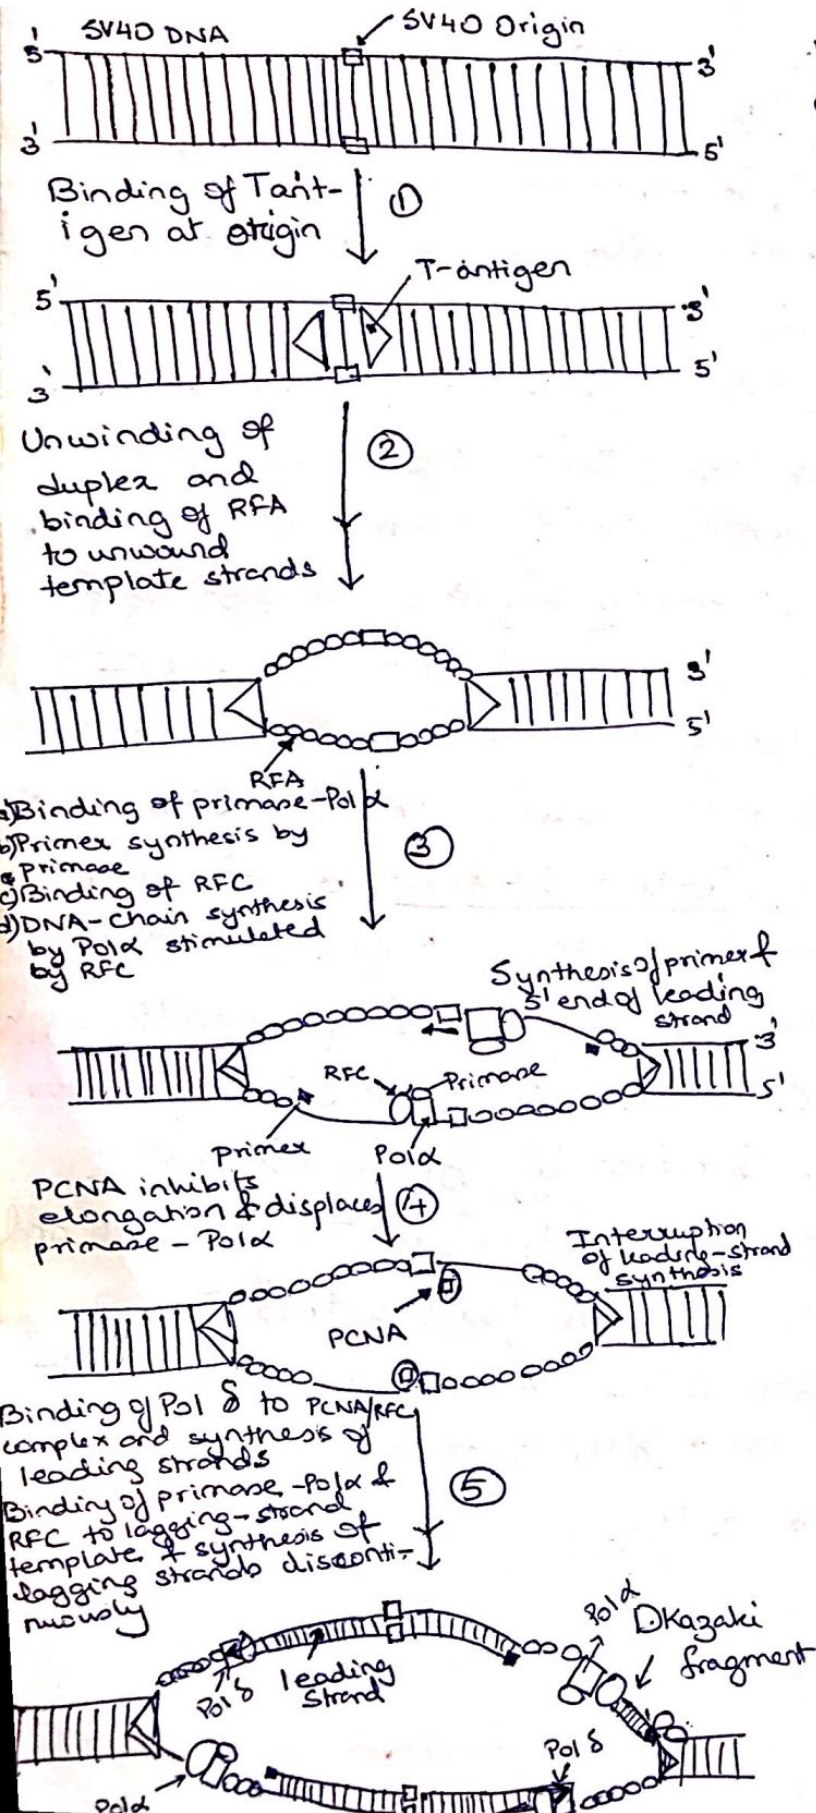 SV40 DNA
SV40 Origin
5'
3'
3'
5'
Binding of Tant-
igen at origin
1
T-antigen
5'
3'
3'
5'
Unwinding of
duplex and
binding of RFA
to unwound
template strands
2
3'
5'
RFA
a)Binding of primase-Pol α
b)Primer synthesis by
primase
c)Binding of RFC
d)DNA-chain synthesis
by Polα stimulated
by RFC
3
Synthesis of primer &
5' end of leading
strand
3'
5'
RFC
Primase
primer
Polα
PCNA inhibits
elongation & displaces
primase - Polα
4
Interruption
of leading-strand
synthesis
PCNA
Binding of Pol δ to PCNA/RFC
complex and synthesis of
leading strands
Binding of primase -Polα &
RFC to lagging-strand
template & synthesis of
lagging strands disconti-
nuously
5
Polα
Okazaki
fragment
Pol δ
leading
Strand
Pol δ
Polα